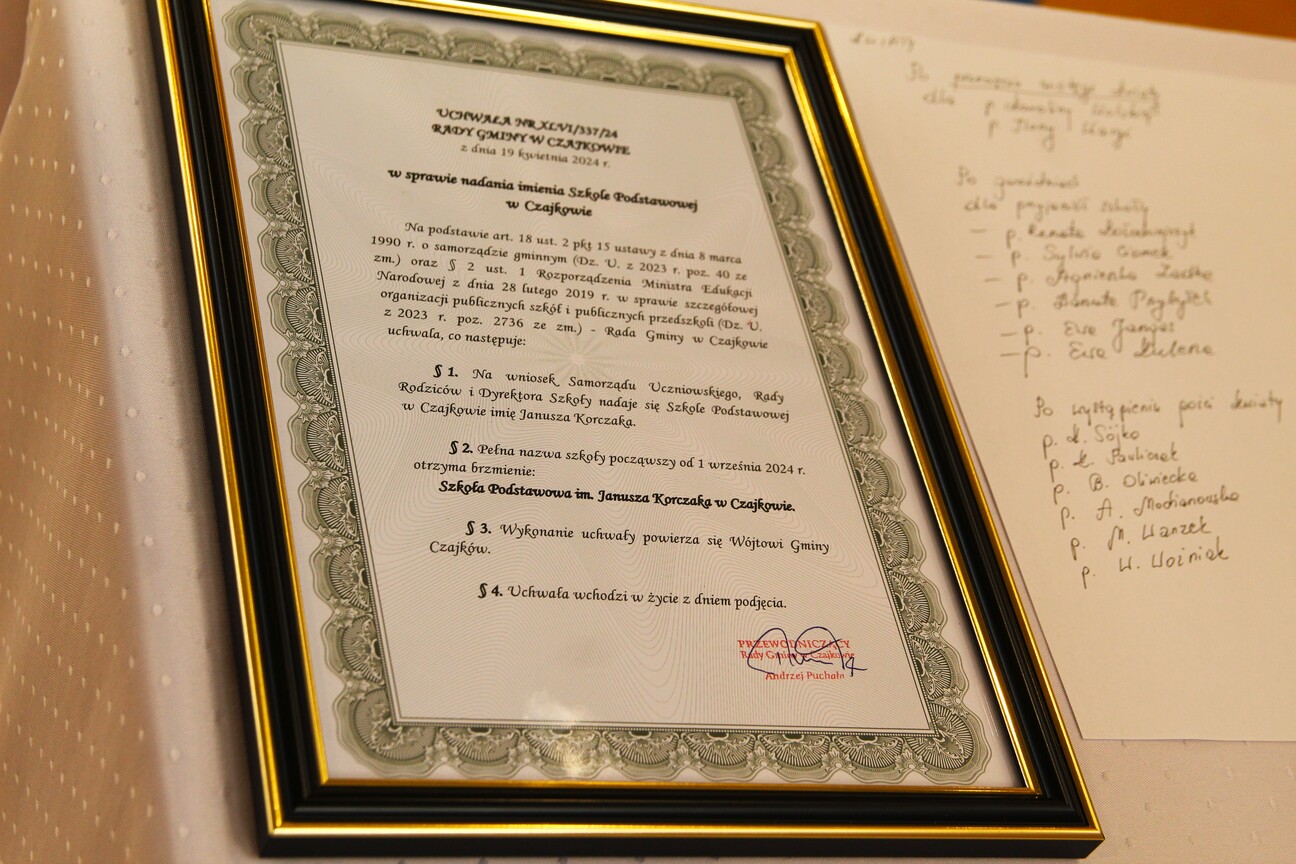 UCHWAŁA NR XLVI/337/24
RADY GMINY W CZAJKOWIE
z dnia 19 kwietnia 2024 r.
w sprawie nadania imienia Szkole Podstawowej
w Czajkowie
Na podstawie art. 18 ust. 2 pkt 15 ustawy z dnia 8 marca
1990 r. o samorządzie gminnym (Dz. U. z 2023 r. poz. 40 ze
zm.) oraz § 2 ust. 1 Rozporządzenia Ministra Edukacji
Narodowej z dnia 28 lutego 2019 r. w sprawie szczegółowej
organizacji publicznych szkół i publicznych przedszkoli (Dz. U.
z 2023 r. poz. 2736 ze zm.) - Rada Gminy w Czajkowie
uchwala, co następuje:
§ 1. Na wniosek Samorządu Uczniowskiego, Rady
Rodziców i Dyrektora Szkoły nadaje się Szkole Podstawowej
w Czajkowie imię Janusza Korczaka.
§ 2. Pełna nazwa szkoły począwszy od 1 września 2024 r.
otrzyma brzmienie:
Szkoła Podstawowa im. Janusza Korczaka w Czajkowie.
§ 3. Wykonanie uchwały powierza się Wójtowi Gminy
Czajków.
§ 4. Uchwała wchodzi w życie z dniem podjęcia.
PRZEWODNICZĄCY
Rady Gminy w Czajkowie
Andrzej Puchała
Kwiaty
Po
dla p.
p.
Po
dla przyjaciół szkoły
- p. Renata
- p. Sylwia
- p. Agnieszka
- p. Danuta
- p. Ewa
- p. Ewa
Po wystąpieniu gości kwiaty
p. K. Sójka
p. Ł. Pauliczek
p. B. Oliwiecka
p. A.
p. M. Wanzek
p. W. Woźniak